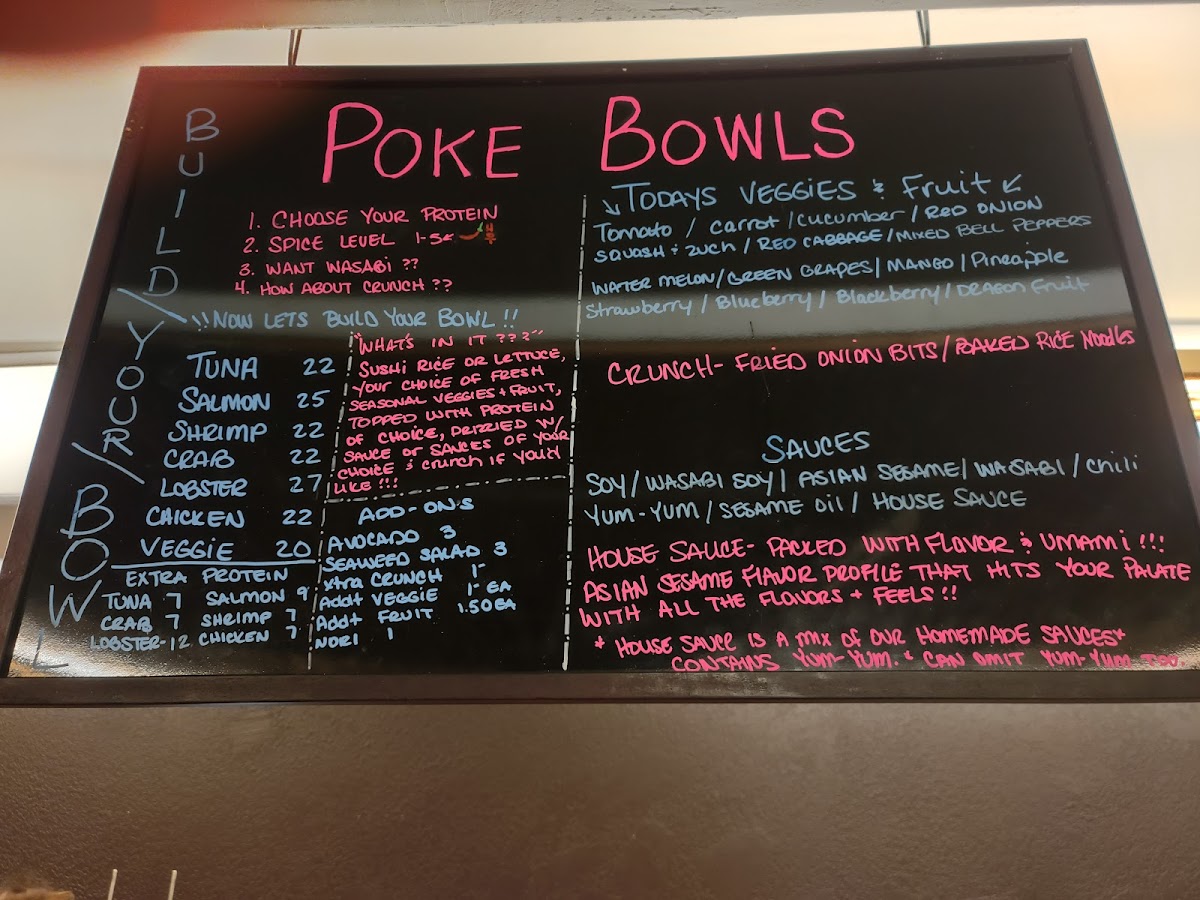 POKE BOWLS
BUILD/YOUR/BOWL
1. CHOOSE YOUR PROTEIN
2. SPICE LEVEL 1-5
3. WANT WASABI ??
4. HOW ABOUT CRUNCH ??
!!NOW LETS BUILD YOUR BOWL!!
TUNA 22
SALMON 25
SHRIMP 22
CRAB 22
LOBSTER 27
CHICKEN 22
VEGGIE 20
EXTRA PROTEIN
TUNA 7 SALMON 9
CRAB 7 SHRIMP 7
LOBSTER-12 CHICKEN 7
"WHAT'S IN IT ???"
SUSHI RICE OR LETTUCE,
YOUR CHOICE OF FRESH
SEASONAL VEGGIES + FRUIT,
TOPPED WITH PROTEIN
OF CHOICE, DRIZZLED W/
SAUCE OR SAUCES OF YOUR
CHOICE & CRUNCH IF YOU'D
LIKE !!!
ADD-ONS
AVOCADO 3
SEAWEED SALAD 3
Xtra CRUNCH 1-
Add+ VEGGIE 1- EA
Add+ FRUIT 1.50 EA
NORI 1
TODAYS VEGGIES & Fruit
Tomato / Carrot / Cucumber / RED ONION
SQUASH & ZUCH / RED CABBAGE / MIXED BELL PEPPERS
WATER MELON / GREEN GRAPES / MANGO / Pineapple
Strawberry / Blueberry / Blackberry / DRAGON Fruit
CRUNCH- FRIED ONION BITS / BAKED RICE Noodles
SAUCES
SOY / WASABI SOY / ASIAN SESAME / WASABI / Chili
YUM-YUM / SESAME Oil / HOUSE SAUCE
HOUSE SAUCE- PACKED WITH FLAVOR & UMAMI !!!
ASIAN SESAME FLAVOR PROFILE THAT HITS YOUR PALATE
WITH ALL THE FLAVORS + FEELS !!
* HOUSE SAUCE IS A MIX OF OUR HOMEMADE SAUCES*
CONTAINS YUM-YUM. * CAN OMIT YUM-YUM TOO